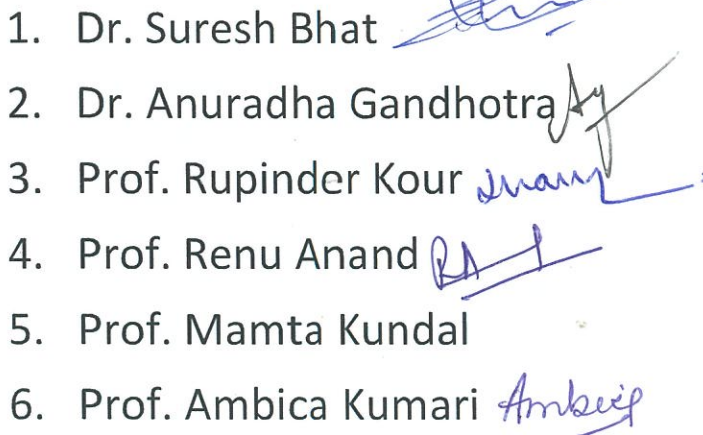 1. Dr. Suresh Bhat
2. Dr. Anuradha Gandhotra
3. Prof. Rupinder Kour
4. Prof. Renu Anand RA
5. Prof. Mamta Kundal
6. Prof. Ambica Kumari